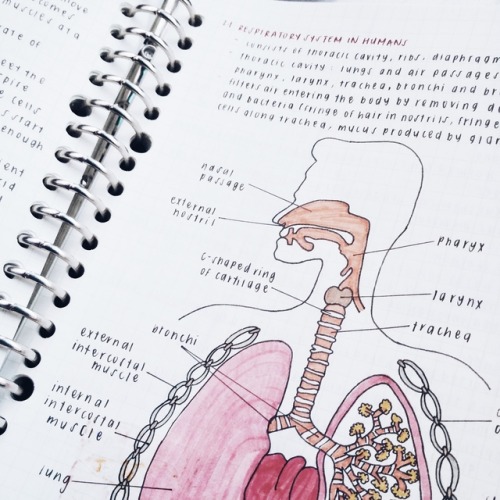 muscles at a
rate of
meet the
cells
start
enough
RESPIRATORY SYSTEM IN HUMANS
- consists of thoracic cavity, ribs, diaphragm
- thoracic cavity: lungs and air passages
pharynx, larynx, trachea, bronchi and
filters air entering the body by removing
and bacteria (fringe of hair in nostrils, fringe
cells along trachea, mucus produced by
nasal
passage
external
nostril
C-shaped ring
of cartilage
pharyx
larynx
trachea
bronchi
external
intercostal
muscle
internal
intercostal
muscle
lung